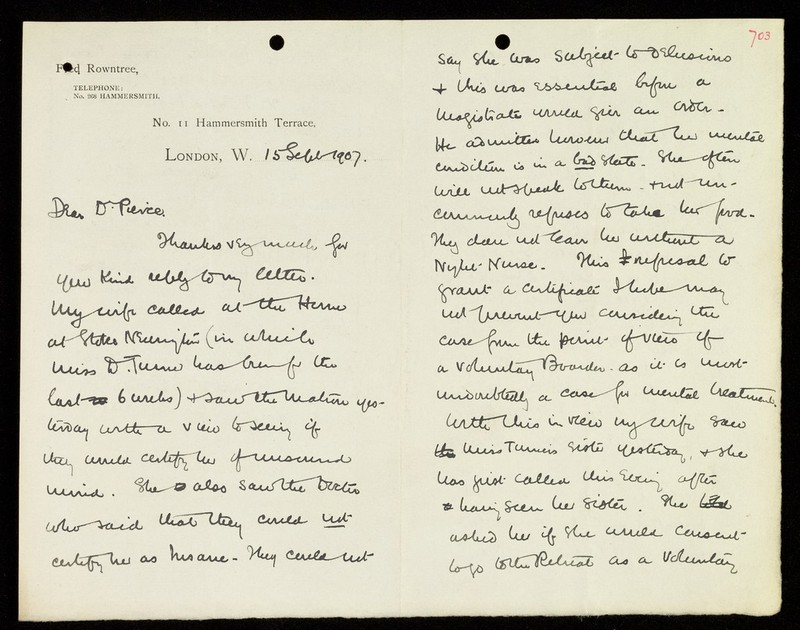 Fred Rowntree,
TELEPHONE:
No. 268 HAMMERSMITH.
No. 11 Hammersmith Terrace,
LONDON, W. 15 Sept 1907.
Dear Dr. Pierce,
Thanks very much for
your kind reply to my letter.
My wife called at the Home
at Stoke Newington (in which
Miss D. Turner has been for the
last 6 weeks) & saw the Matron yes-
terday with a view to seeing if
they would certify her of unsound
mind. She also saw the Doctor
who said that they could not
certify her as Insane - They could not
703
say she was subject to Delusions
& this was essential before a
Magistrate would give an order -
He admitted however that her mental
condition is in a bad state - She often
will not speak to them - and un-
commonly refuses to take her food -
They dare not leave her without a
Night-Nurse. This refusal to
grant a certificate I hope may
not prevent you considering the
case from the point of view of
a Voluntary Boarder - as it is most
undoubtedly a case for mental treatment.
With this in view my wife saw
Miss Turner's sister yesterday, & she
has just called this Evening after
having seen her sister. She had
asked her if she would consent
to go to the Retreat as a Voluntary